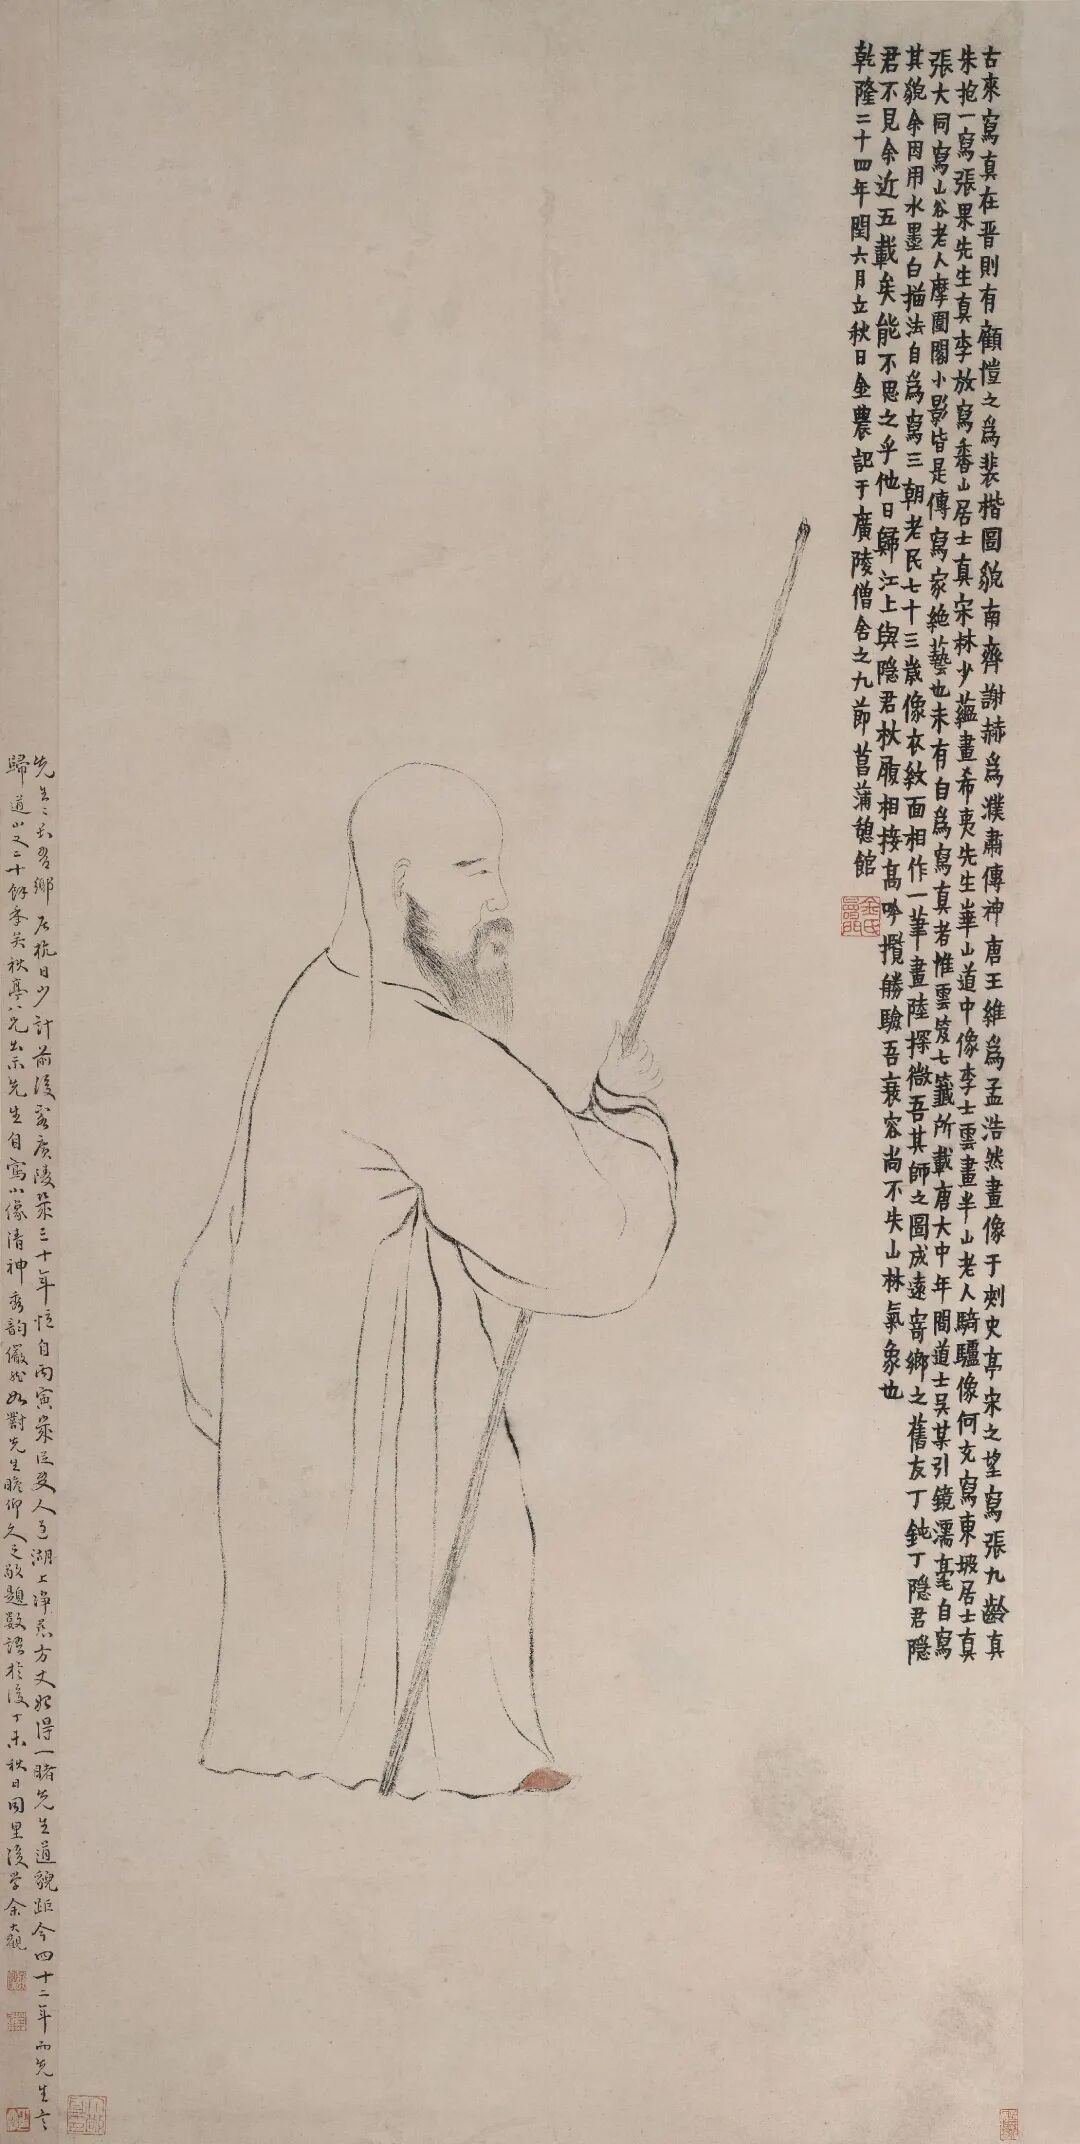 古來寫真在晋則有顧愷之爲裴楷圖貌南齊謝赫爲濮肅傳神唐王維爲孟浩然畫像于刺史亭宋之望寫張九齡真
朱抱一寫張果先生真李放寫香山居士真宋林少蘊畫希夷先生華山道中像李士雲畫半山老人騎驢像何充寫東坡居士真
張大同寫山谷老人摩圍閣小影皆是傳寫家絶藝也未有自爲寫真者惟雲笈七籤所載唐大中年間道士吴某引鏡濡毫自寫
其貌余因用水墨白描法自爲寫三朝老民七十三歲像衣紋面相作一筆畫陸探微吾其師之圖成遠寄鄉之舊友丁鈍丁隱君隱
君不見余近五載矣能不思之乎他日歸江上與隱君杖履相接高吟攬勝驗吾衰容尚不失山林氣象也
乾隆二十四年閏六月立秋日金農記于廣陵僧舍之九節菖蒲憩館
金氏
先生=吾鄉居杭日少計前後客廣陵㡬三十年憶自丙寅㡬人湖上淨慈方丈始得一睹先生道貌距今四十二年而先生之
歸道山又二十餘年矣秋亭八兄出示先生自寫小像清神秀韵儼然如對先生瞻仰久之敬題數語於後丁未秋日同里後學余大觀